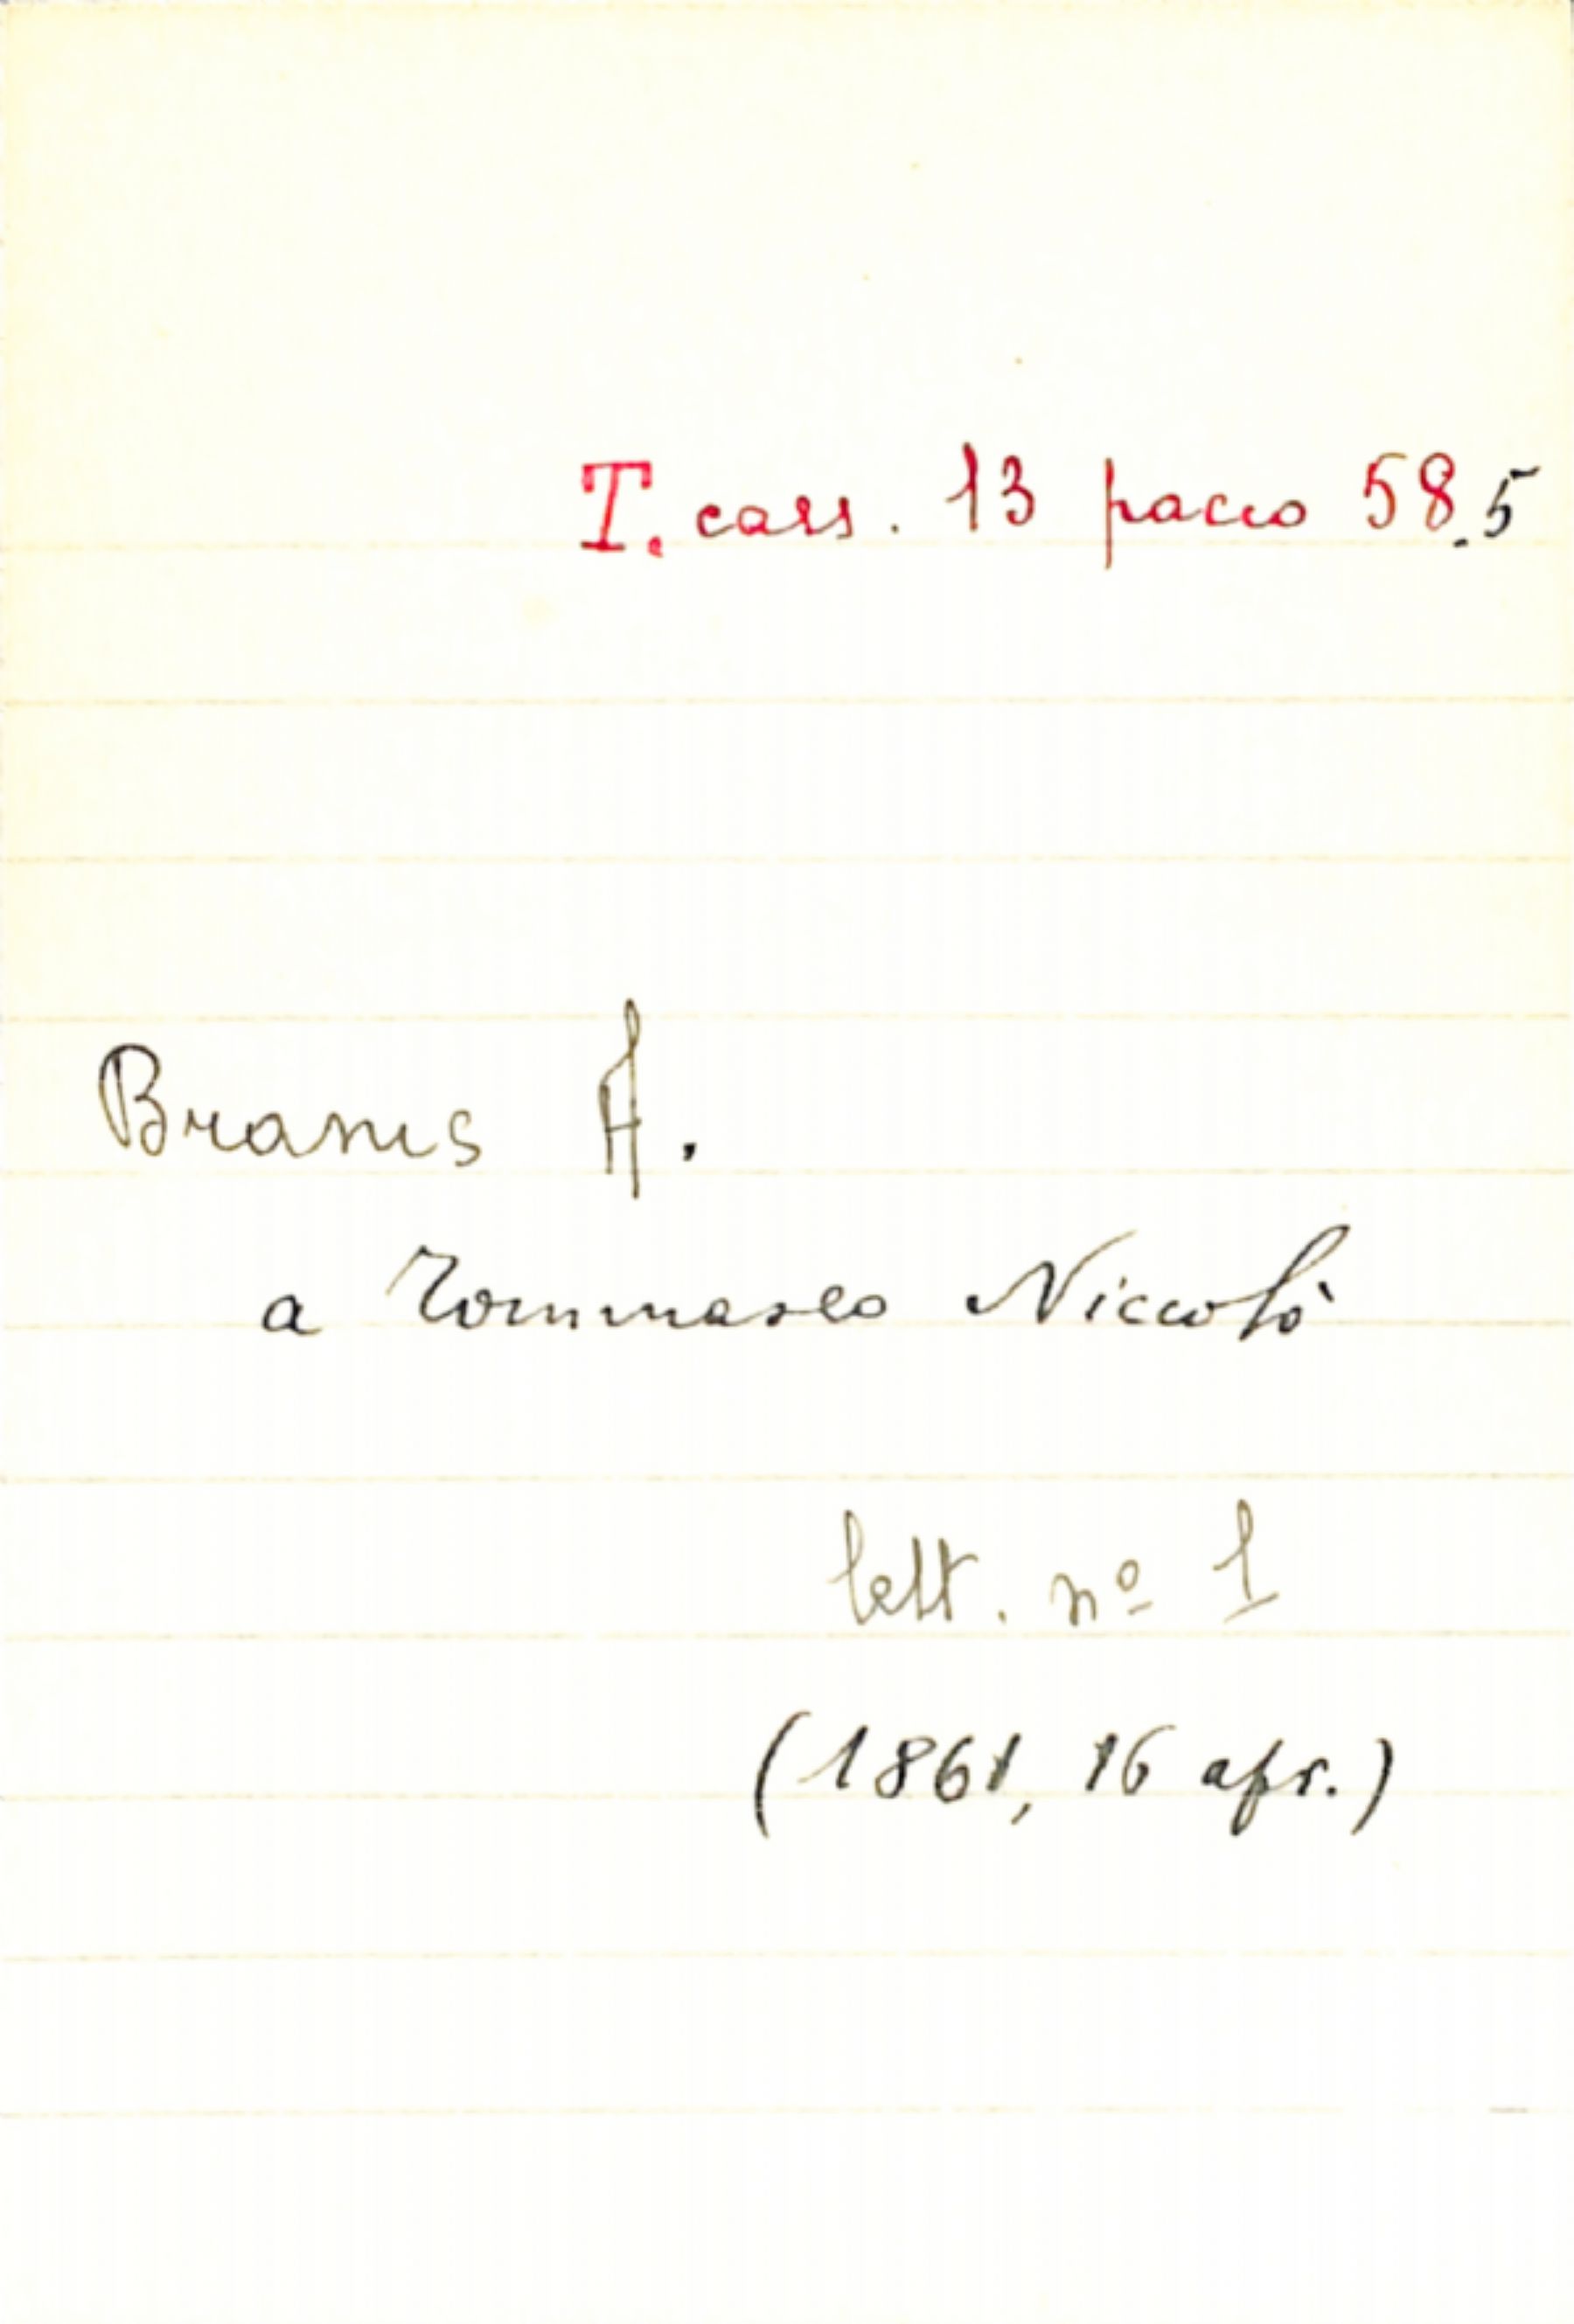 T. cass. 13 pacco 58.5
Branis A.
a Tommaseo Niccolò
lett. nº 1
(1861, 16 apr.)